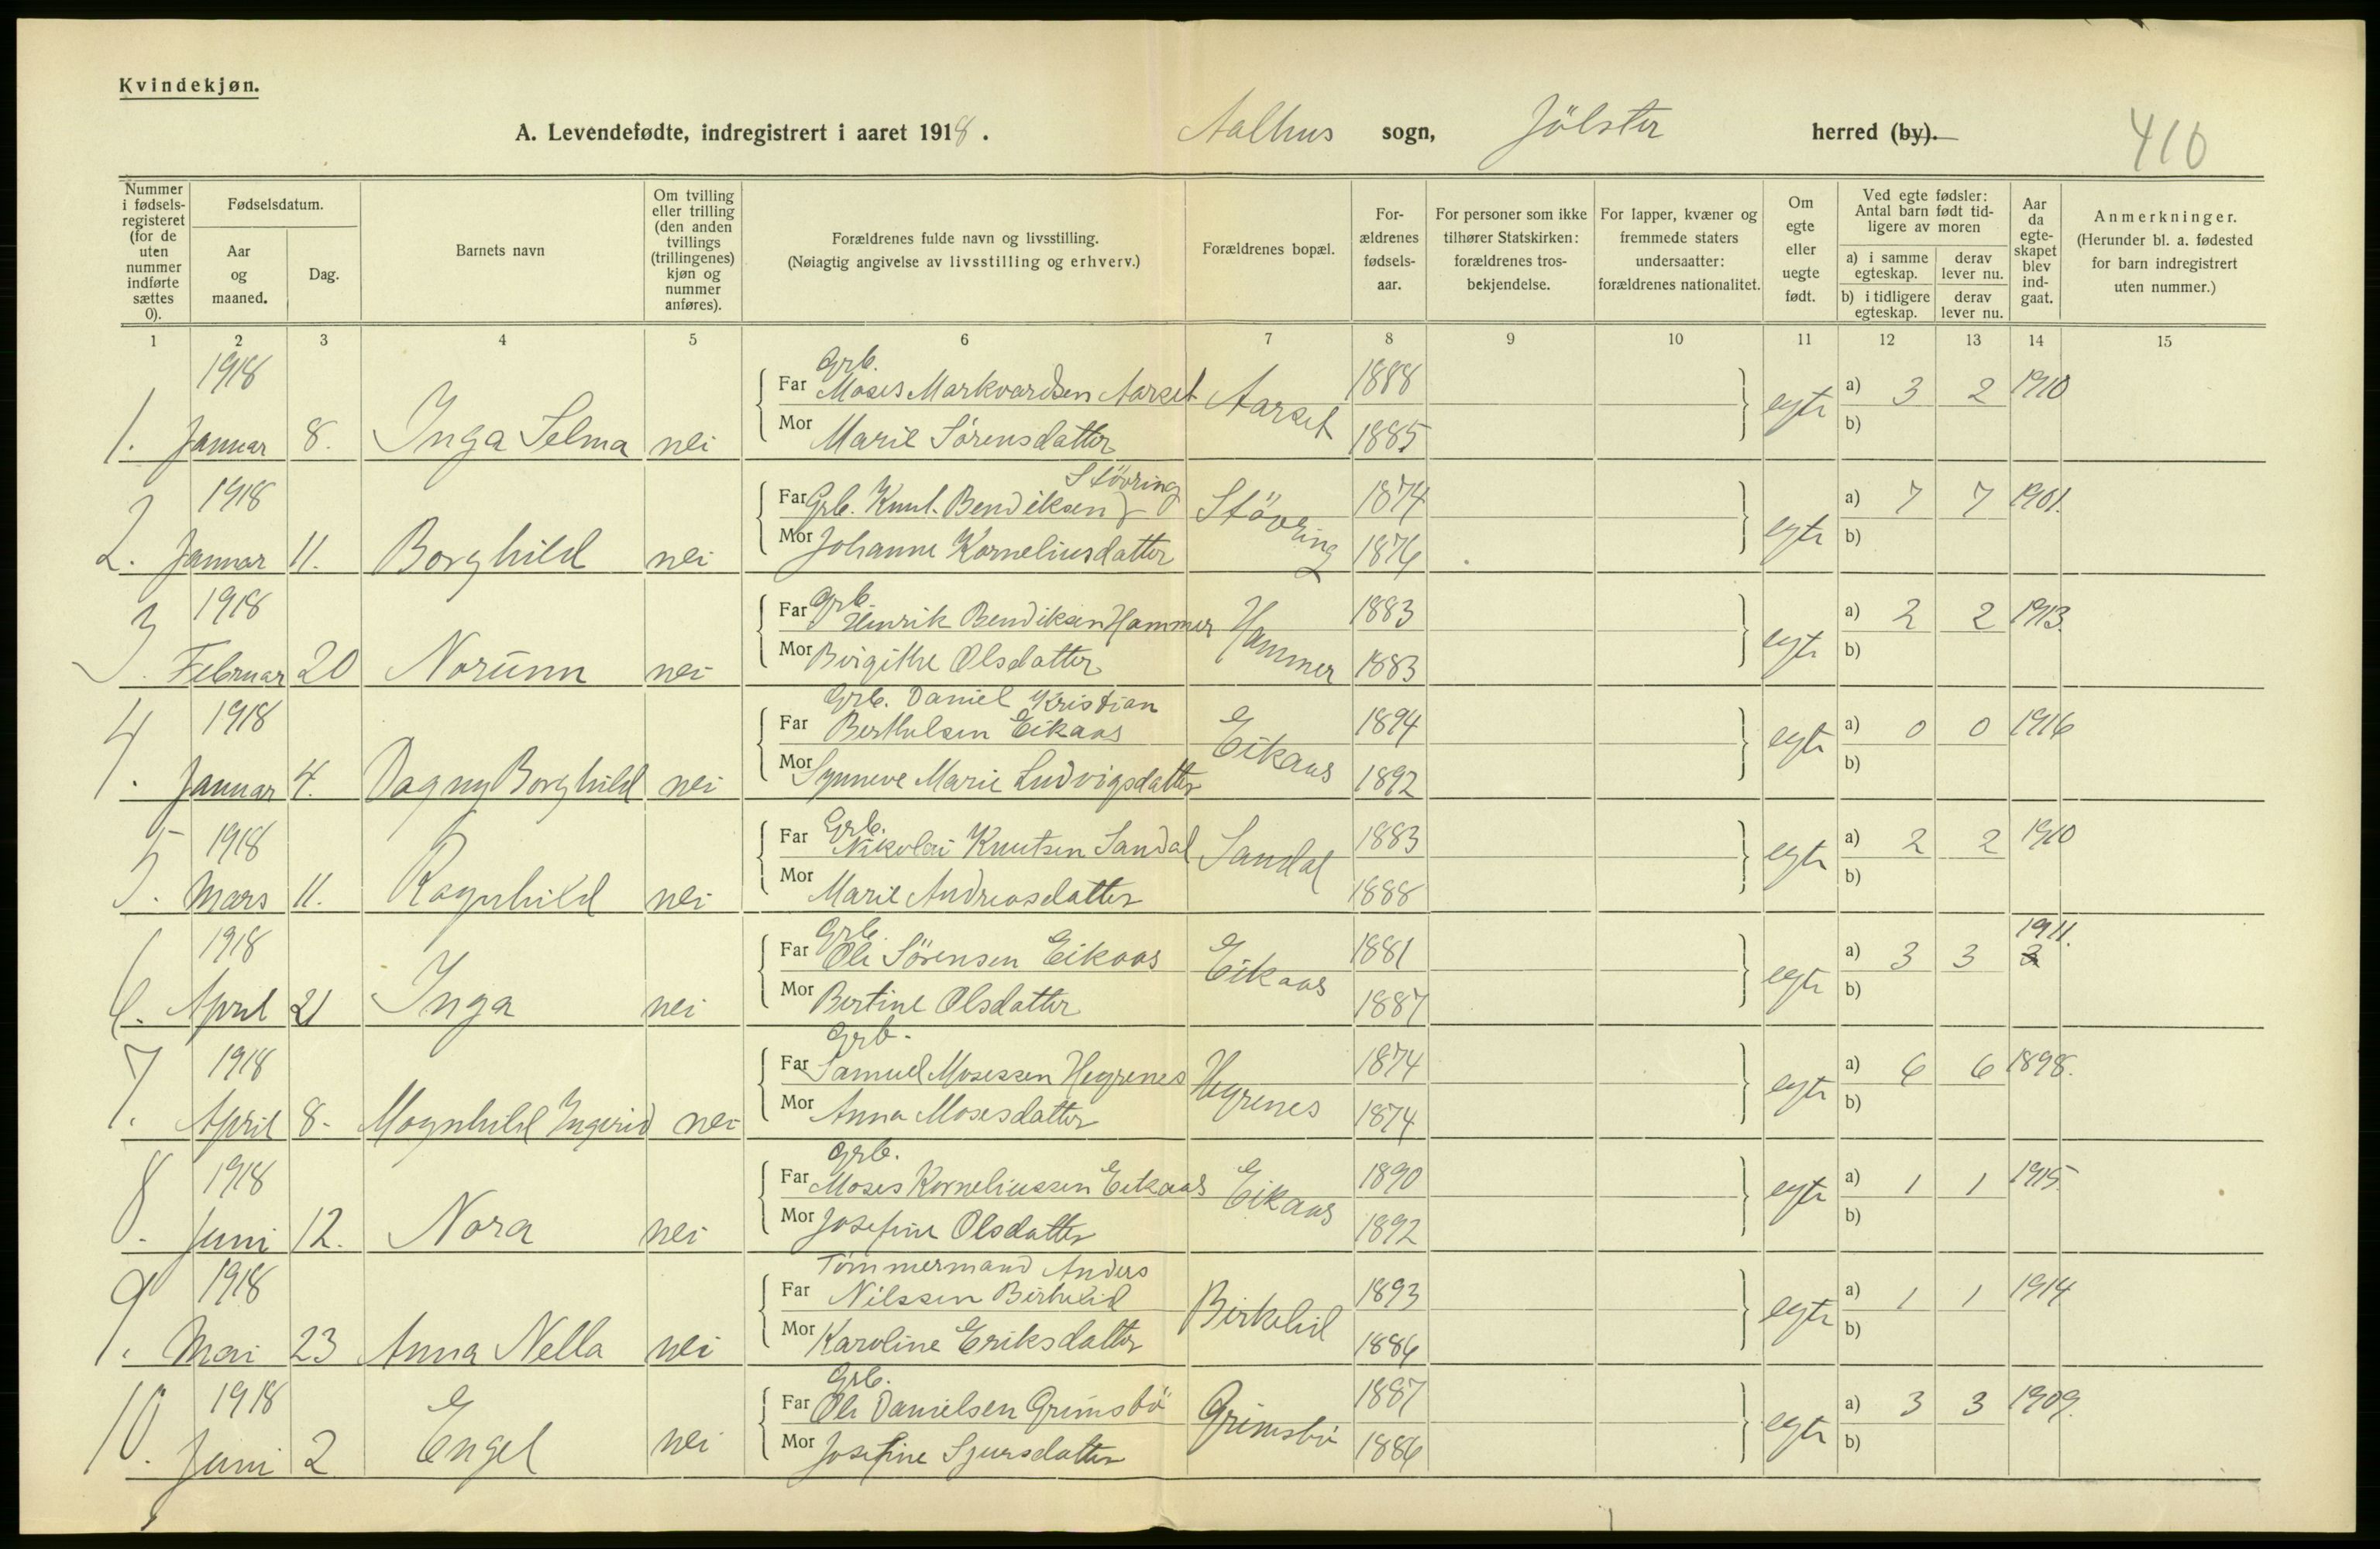 Kvindekjøn.
A. Levendefødte, indregistrert i aaret 1918. Aalhus sogn, Jölster herred (by). 410
Nummer i fødselsregisteret (for de uten nummer indførte sættes 0).
Fødselsdatum.
Aar og maaned.
Dag.
Barnets navn
Om tvilling eller trilling (den anden tvillings (trillingenes) kjøn og nummer anføres).
Forældrenes fulde navn og livsstilling.
(Nøiagtig angivelse av livsstilling og erhverv.)
Forældrenes bopæl.
Forældrenes fødselsaar.
For personer som ikke tilhører Statskirken: forældrenes trosbekjendelse.
For lapper, kvæner og fremmede staters undersaatter: forældrenes nationalitet.
Om egte eller uegte født.
Ved egte fødsler: Antal barn født tidligere av moren
a) i samme egteskap. derav lever nu.
b) i tidligere egteskap. derav lever nu.
Aar da egteskapet blev indgaat.
Anmerkninger.
(Herunder bl. a. fødested for barn indregistrert uten nummer.)
1 2 3 4 5 6 7 8 9 10 11 12 13 14 15
1918 Grb.
Far Moses Markvardsen Aarset Aarset 1888 a) 3 2 1910
1. Januar 8. Inga Selma nei Mor Marie Sörensdatter 1885 egte b)
1918 Stövring
Far Grb. Knut. Bendiksen Stövring 1874 a) 7 7 1901.
2. Januar 11. Borghild nei Mor Johanne Korneliusdatter 1876 egte b)
1918 Grb.
Far Henrik Bendiksen Hammer Hammer 1883 a) 2 2 1913.
3. Februar 20 Norunn nei Mor Birgithe Olsdatter 1883 egte b)
1918 Grb. Daniel Kristian
Far Berthelsen Eikaas Eikaas 1894 a) 0 0 1916
4. Januar 4. Dagny Borghild nei Mor Synneve Marie Ludvigsdatter 1892 egte b)
1918 Grb.
Far Nikolai Knutsen Sandal Sandal 1883 a) 2 2 1910
5. Mars 11. Ragnhild nei Mor Marie Andreasdatter 1888 egte b)
1918 Grb. 1911.
Far Ole Sörensen Eikaas Eikaas 1881 a) 3 3 3
6. April 21 Inga nei Mor Bertine Olsdatter 1887 egte b)
1918 Grb.
Far Samuel Mosessen Hegrenes Hegrenes 1874 a) 6 6 1898.
7. April 8. Magnhild Ingerid nei Mor Anna Mosesdatter 1874 egte b)
1918 Grb.
Far Moses Korneliussen Eikaas Eikaas 1890 a) 1 1 1915.
8. Juni 12. Nora nei Mor Josefine Olsdatter 1892 egte b)
1918 Tömmermand Anders
Far Nilssen Birkelid Birkelid 1893 a) 1 1 1914
9. Mai 23 Anna Nella nei Mor Karoline Eriksdatter 1886 egte b)
1918 Grb.
Far Ole Danielsen Grimsbö Grimsbö 1887 a) 3 3 1909.
10. Juni 2 Engel nei Mor Josefine Sjursdatter 1886 egte b)